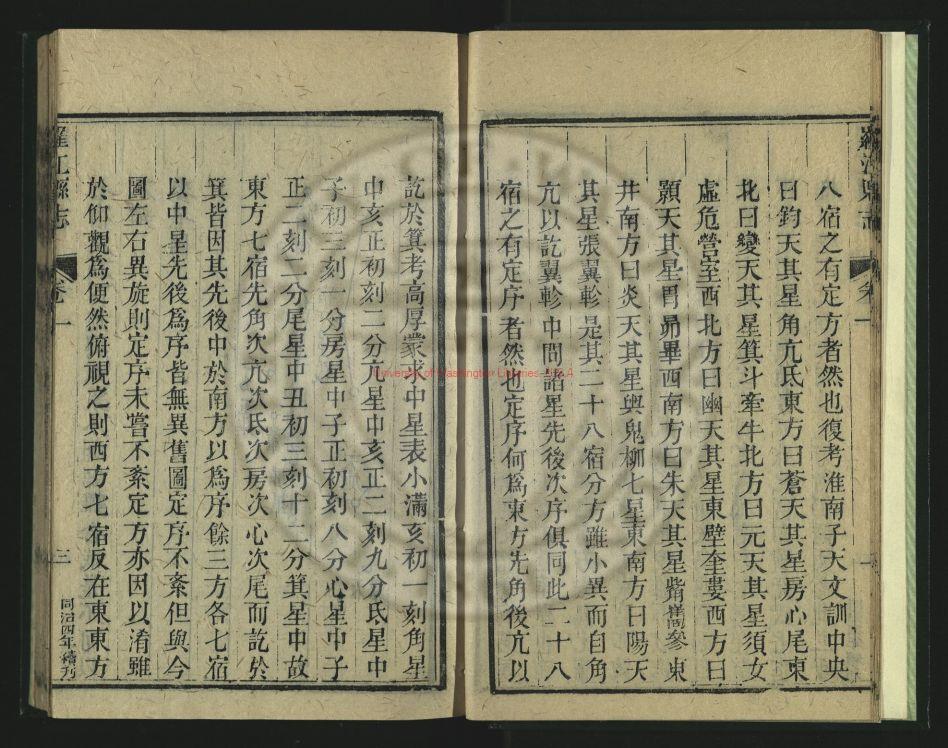 羅江縣志
卷一
八宿之有定方者然也復考淮南子天文訓中央
曰鈞天其星角亢氐東方曰蒼天其星房心尾東
北曰變天其星箕斗牽牛北方曰元天其星須女
虛危營室西北方曰幽天其星東壁奎婁西方曰
顥天其星胃昴畢西南方曰朱天其星觜觿參東
井南方曰炎天其星輿鬼柳七星東南方曰陽天
其星張翼軫是其二十八宿分方雖小異而自角
亢以訖翼軫中間諸星先後次序俱同此二十八
宿之有定序者然也定序何為東方先角後亢以
訖於箕考高厚蒙求中星表小滿亥初一刻角星
中亥正初刻二分亢星中亥正二刻九分氐星中
子初三刻一分房星中子正初刻八分心星中子
正二刻二分尾星中丑初三刻十二分箕星中故
東方七宿先角次亢次氐次房次心次尾而訖於
箕皆因其先後中於南方以為序餘三方各七宿
以中星先後為序皆無異舊圖定序不紊但與今
圖左右異旋則定序未嘗不紊定方亦因以淆雖
於仰觀為便然俯視之則西方七宿反在東東方
羅江縣志
卷一
三
同治四年續刊
University of Washington Libraries